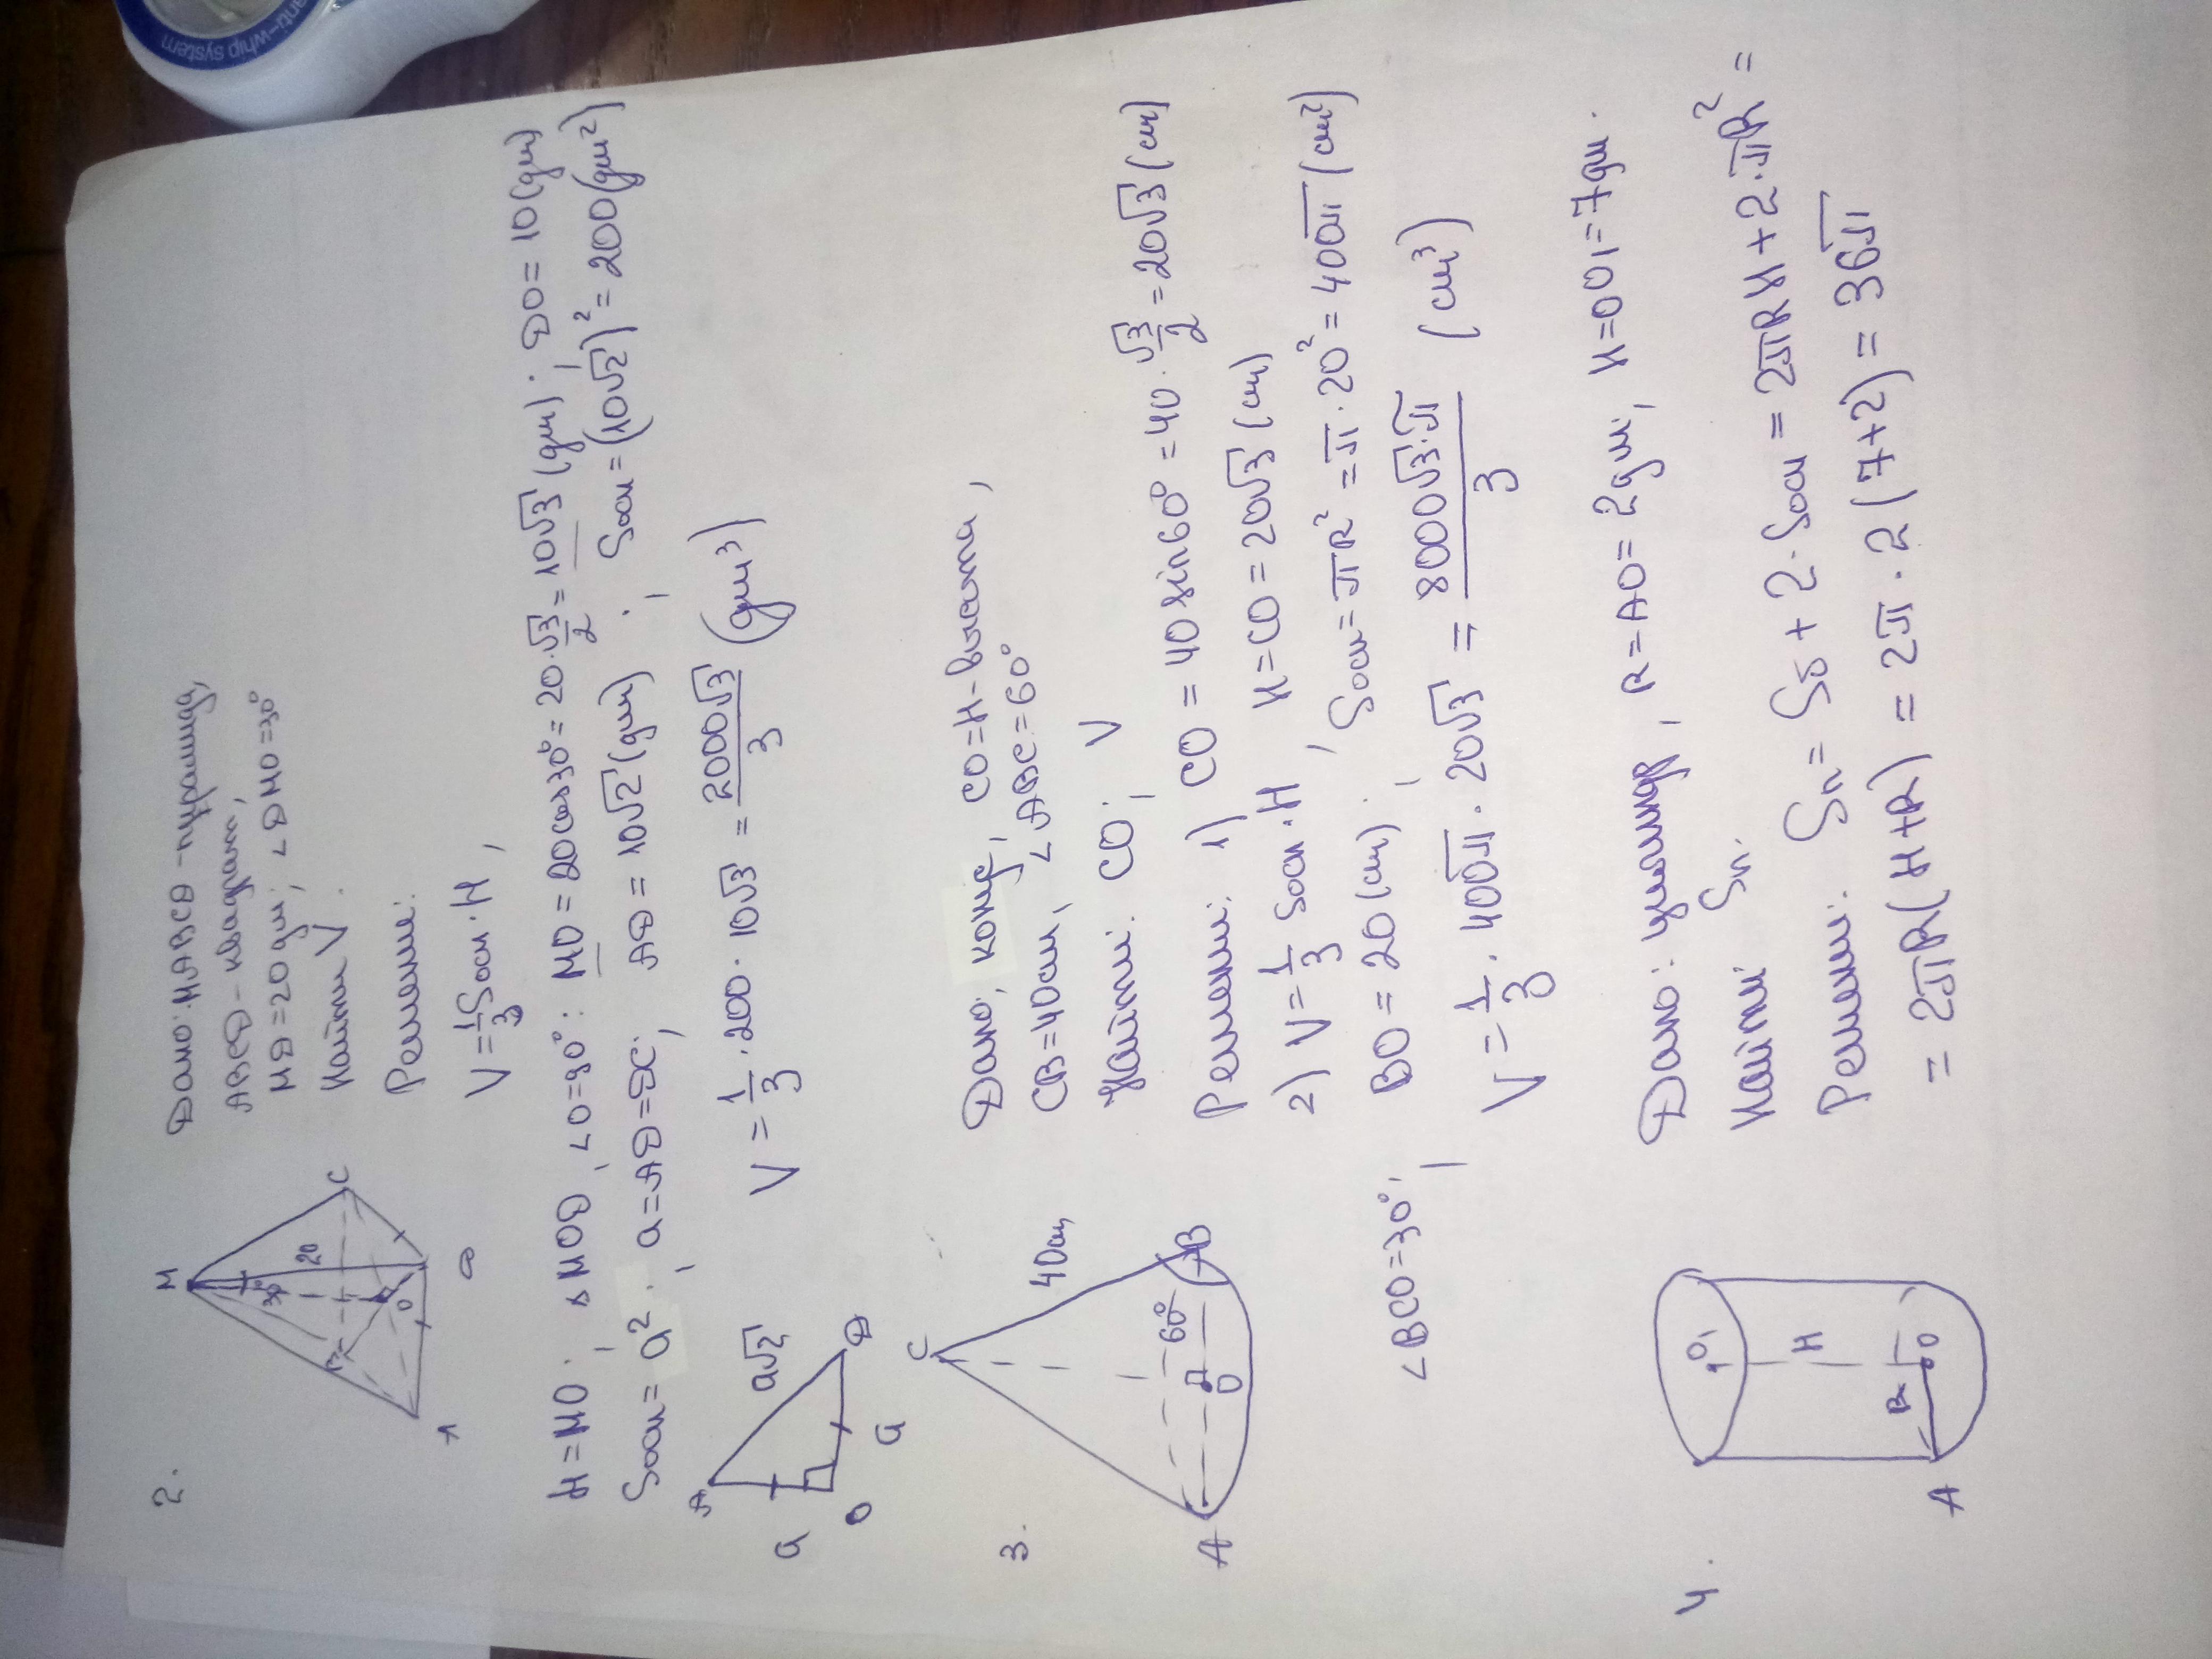 anti-whip system
2.
M
C
20
30°
B
O
A
D
Дано: MABCD - пирамида,
ABCD - квадрат,
MD = 20 дм; ∠DMO = 30°
Найти V.
Решение:
V = 1/3 Sосн · H,
H = MO; △MOD, ∠O = 90°: MO = 20cos30° = 20 · √3/2 = 10√3 (дм); DO = 10 (дм)
Sосн = a²; a = AD = DC; AD = 10√2 (дм); Sосн = (10√2)² = 200 (дм²)
A
a
a√2
O
a
D
V = 1/3 · 200 · 10√3 = 2000√3/3 (дм³)
3.
C
40см
60°
A
O
B
Дано: конус, CO = H - высота,
CB = 40см, ∠ABC = 60°
Найти: CO; V
Решение: 1) CO = 40 sin60° = 40 · √3/2 = 20√3 (см)
2) V = 1/3 Sосн · H, H = CO = 20√3 (см)
∠BCO = 30°; BO = 20 (см); Sосн = πR² = π · 20² = 400π (см²)
V = 1/3 · 400π · 20√3 = 8000√3 · π/3 (см³)
4.
O₁
H
R
O
A
Дано: цилиндр, R = AO = 2дм; H = OO₁ = 7дм.
Найти: Sп.
Решение: Sп = Sб + 2 · Sосн = 2πRH + 2 · πR² =
= 2πR(H+R) = 2π · 2(7+2) = 36π